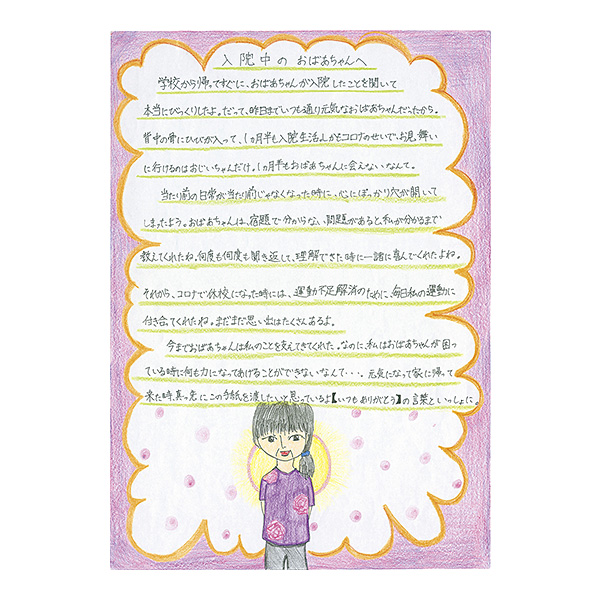 入院中の おばあちゃんへ
学校から帰ってすぐに、おばあちゃんが入院したことを聞いて
本当にびっくりしたよ。だって、昨日までいつも通り元気なおばあちゃんだったから。
背中の骨にひびが入って、1ヵ月半も入院生活。しかもコロナのせいで、お見舞い
に行けるのはおじいちゃんだけ。1ヵ月半もおばあちゃんに会えないなんて。
当たり前の日常が当たり前じゃなくなった時に、心にぽっかり穴が開いて
しまったよう。おばあちゃんは、宿題で分からない問題があると、私が分かるまで
教えてくれたね。何度も何度も聞き返して、理解できた時に一諸に喜んでくれたよね。
それから、コロナで休校になった時には、運動不足解消のために、毎日私の運動に
付き合てくれたね。まだまだ思い出はたくさんあるよ。
今までおばあちゃんは私のことを支えてきてくれた。なのに、私はおばあちゃんが困っ
ている時に何も力になってあげることができないなんて・・・。元気になって家に帰って
来た時、真っ先にこの手紙を渡したいと思っているよ【いつもありがとう】の言葉といっしょに。